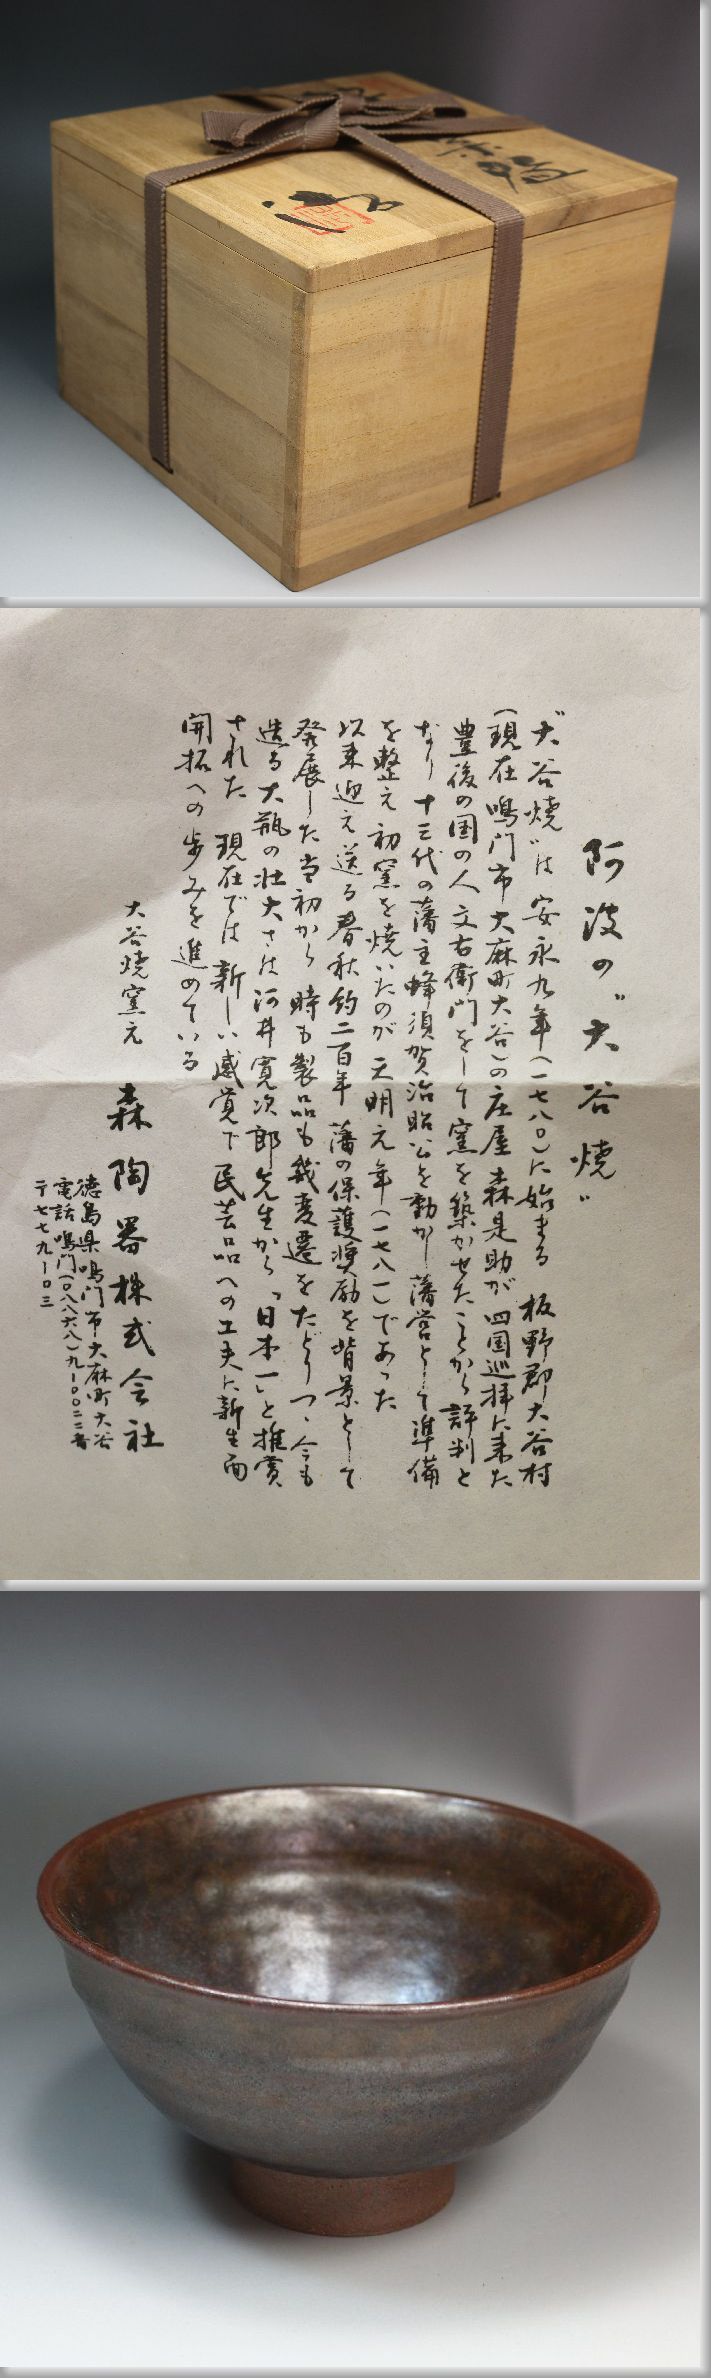 阿波の〝大谷焼〟
〝大谷焼〟は安永九年(一七八〇)に始まる 板野郡大谷村
(現在 鳴門市大麻町大谷)の庄屋 森是助が 四国巡拝に来た
豊後の国の人 文右衛門をして窯を築かせたことから評判と
なり 十三代の藩主蜂須賀治昭公を動かし藩営として準備
を整え 初窯を焼いたのが 天明元年(一七八一)であった
以来迎え送る春秋約二百年 藩の保護奨励を背景として
発展した当初から 時も製品も幾変遷をたどりつゝ今も
造る大瓶の壮大さは河井寛次郎先生から「日本一」と推賞
された 現在では新しい感覚で民芸品への工夫に新生面
開拓への歩みを進めている
大谷焼窯元 森陶器株式会社
徳島県鳴門市大麻町大谷
電話 鳴門(〇八八六八)九ー〇〇二二番
〒七七九ー〇三